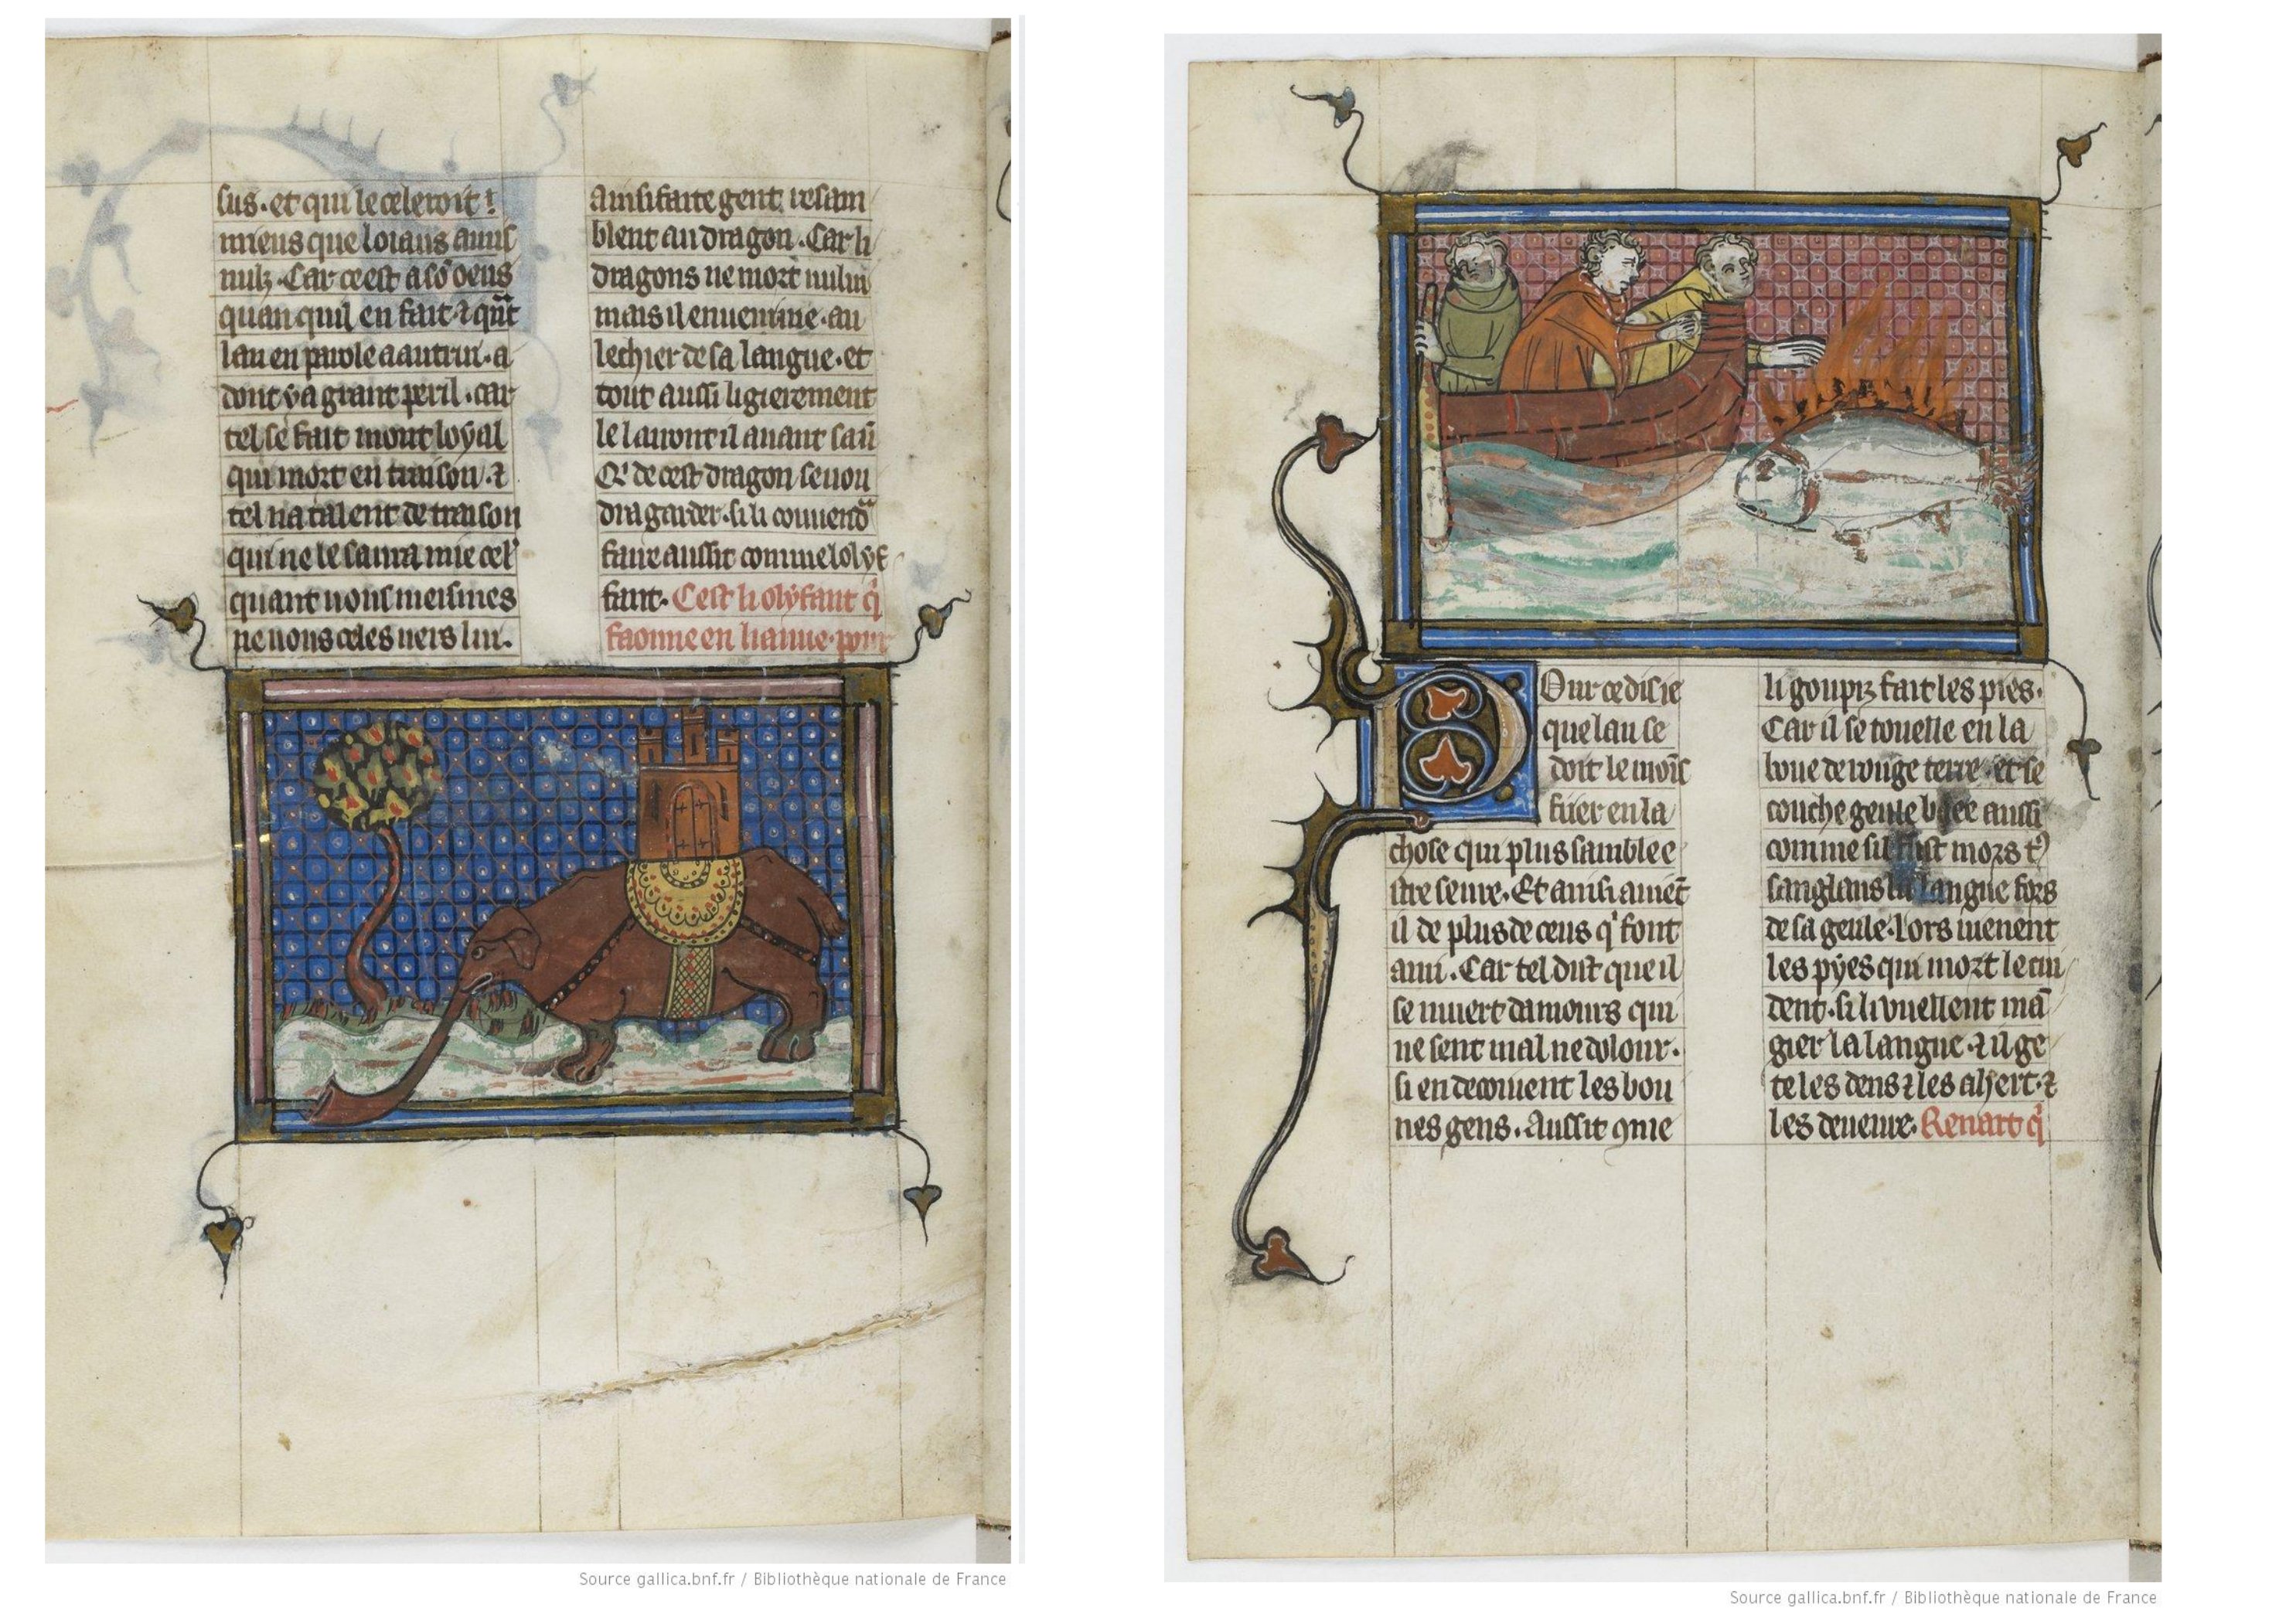 sus. et qui le celeroit!
miens que loiaus amis
nulz. Car ce est a sō oeus
quan quil en fait ⁊ qūt
lan en parole a autrui. a
dont y a grant peril. car
tel se fait mout loyal
qui mort en traison. ⁊
tel na talent de traison
qui ne le saura mie cel'
quant nous meismes
ne nous celes vers lui.
Ainsi faite gent resam
blent au dragon. Car li
dragons ne mort nului
mais il envenime. au
lechier de sa langue. et
tout aussi ligierement
le
Qⁱ de cest dragon se vou
dra garder. si li couuendᵃ
faire aussit comme lolyf
fant. Cest li olyfant qⁱ
faonne en liaue. pour
Source gallica.bnf.fr / Bibliothèque nationale de France
Pour ce dis ie
que lan se
doit le mois
fiier en la
chose qui plus samble e
stre seure. Et ainsi auiēt
il de plus de ceus qⁱ font
ami. Car tel dist que il
se muert damours qui
ne sent mal ne dolour.
si en decoiuent les bou
nes gens. Aussit 9me
li goupiz fait les pies.
Car il se touelle en la
boue de rouge terre. et se
couche geule baee aussi
comme sil fust mors ⁊
sanglans la langue fors
de sa geule. Lors uienent
les pyes qui mort le cui
dent. si li vuellent mā
gier la langue. ⁊ il ge
te les dens ⁊ les ahert. ⁊
les deueure. Renart qⁱ
Source gallica.bnf.fr / Bibliothèque nationale de France